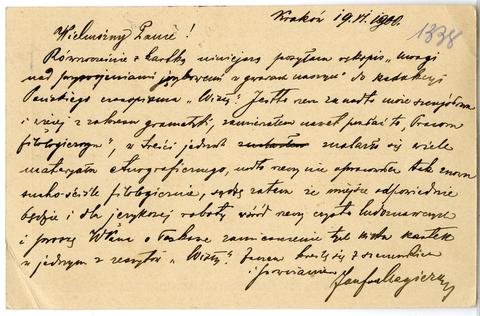 Kraków 19.VI.1900.
1338
Wielmożny Panie!
Równocześnie z kartką niniejszą posyłam rękopis „Uwagi
nad przyrzeczeniami językowemi w gwarach naszych" do Redakcyi
Pańskiego czasopisma „Wisły". Jest to rzecz zanadto może szczegółowa
i więcej z zakresu gramatyki, zamierzałem nawet posłać to „Pracom
filologicznym", w treści jednak znalazło się wiele
materyału etnograficznego, nadto rzecz nie opracowana tak znowu
sucho-ściśle filologicznie, sądzę zatem że miejsce odpowiednie
będzie i dla językowej roboty wśród rzeczy czysto ludoznawczych
i proszę WPana o łaskawe zamieszczenie tych kilku kartek
w jednym z zeszytów „Wisły". Zaczem kreślę się z szacunkiem
i poważaniem
Jan Magiera